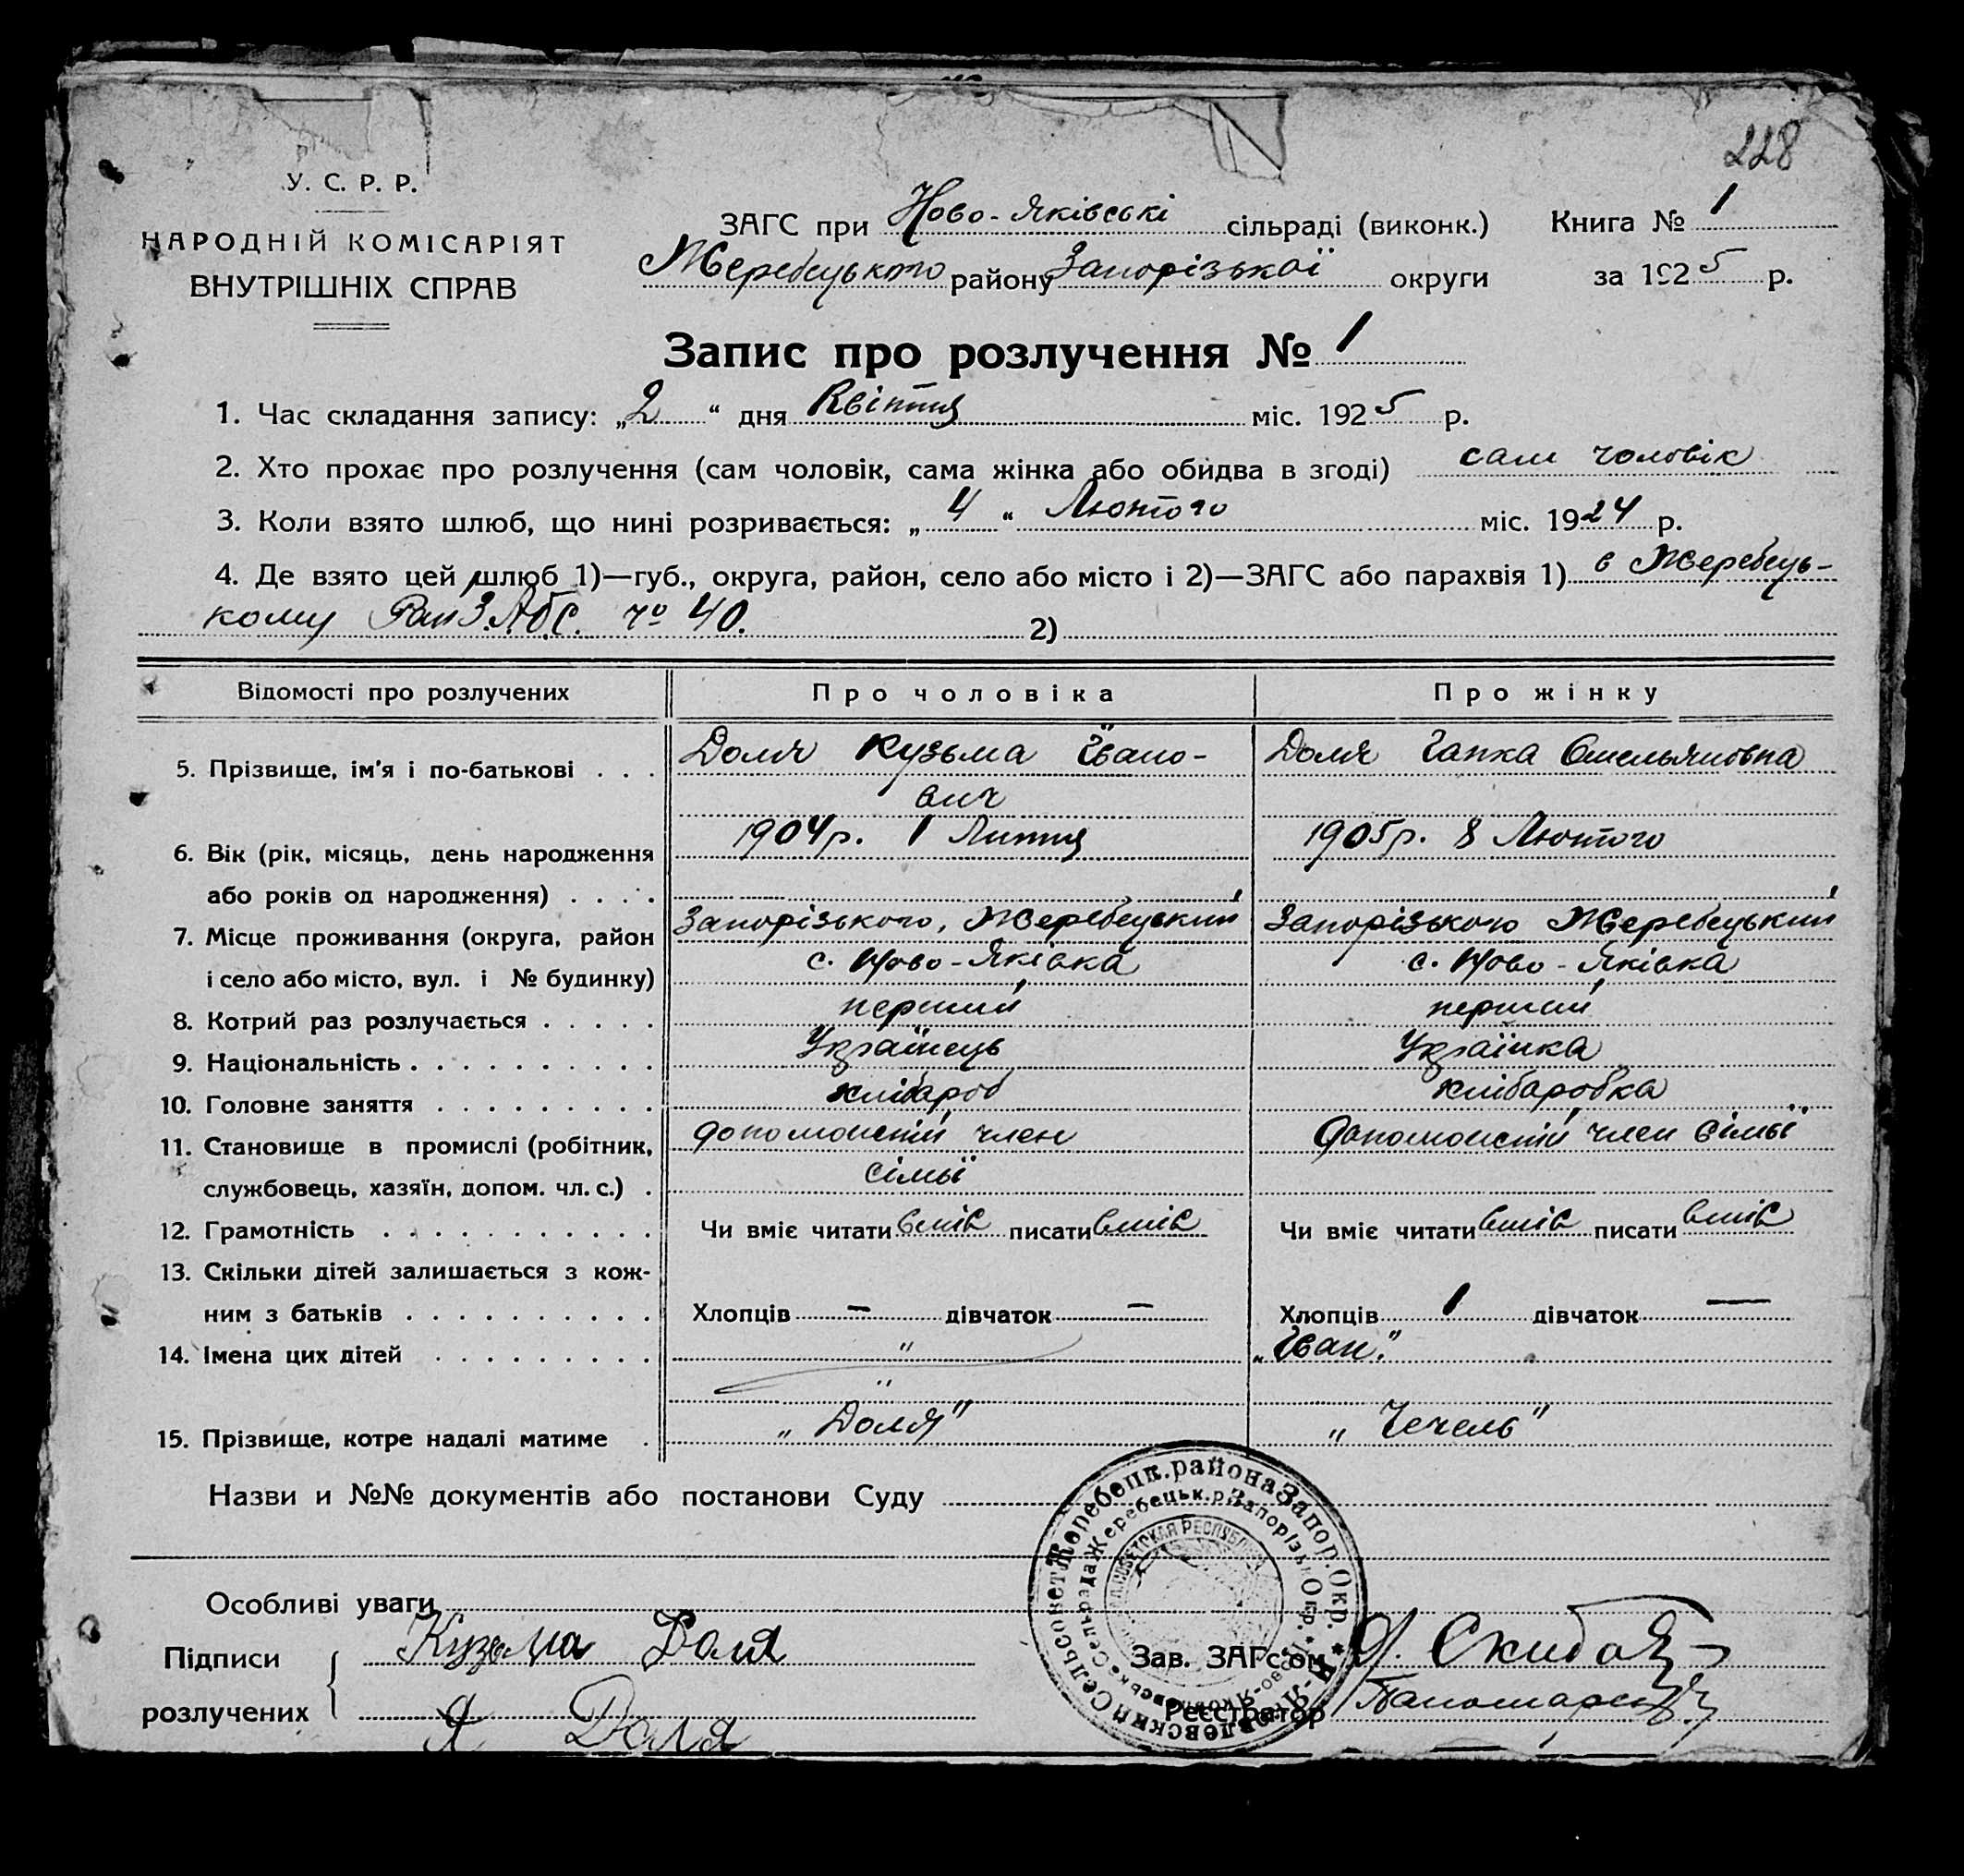 228
У. С. Р. Р.
НАРОДНІЙ КОМІСАРІЯТ
ВНУТРІШНІХ СПРАВ
ЗАГС при Ново-Яківські сільраді (виконк.) Книга № 1
Жеребецького району Запорізької округи за 1925 р.
Запис про розлучення № 1
1. Час складання запису: „2“ дня Квітня міс. 1925 р.
2. Хто прохає про розлучення (сам чоловік, сама жінка або обидва в згоді) сам чоловік
3. Коли взято шлюб, що нині розривається: „4“ Лютого міс. 1924 р.
4. Де взято цей шлюб 1)—губ., округа, район, село або місто і 2)—ЗАГС або парахвія 1) в Жеребець-
кому 40. 2)
Відомості про розлучених Про чоловіка Про жінку
5. Прізвище, ім'я і по-батькові . . . Доля Кузьма Івано- Доля Гапка Омельяновна
вич
6. Вік (рік, місяць, день народження 1904р. 1 Липня 1905р. 8 Лютого
або років од народження) . . . .
7. Місце проживання (округа, район Запорізького, Жеребецький Запорізького Жеребецький
і село або місто, вул. і № будинку) с. Ново-Яківка с. Ново-Яківка
8. Котрий раз розлучається . . . . . перший перший
9. Національність . . . . . . . . . . Українець Українка
10. Головне заняття . . . . . . . . . хлібароб хлібаробка
11. Становище в промислі (робітник, допомоистій член допомоистій член сімьї
службовець, хазяїн, допом. чл. с.) . сімьї
12. Грамотність . . . . . . . . . . . Чи вміє читати вміє писати вміє Чи вміє читати вміє писати вміє
13. Скільки дітей залишається з кож-
ним з батьків . . . . . . . . . . Хлопців — дівчаток — Хлопців 1 дівчаток —
14. Імена цих дітей . . . . . . . . . " „Іван."
"
15. Прізвище, котре надалі матиме . „Доля" „Чечель"
Назви и №№ документів або постанови Суду
Особливі уваги
Підписи Кузьма Доля Зав. ЗАГс'ом Скиба
розлучених Я Доля Реєстратор
Сельсовет Жеребецк. района Запор. Окр.
Сельрада Жеребецьк. р. Запорізьк. Окр.